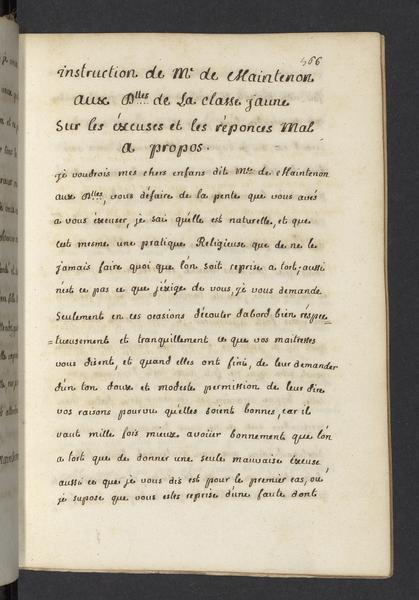 466
instruction de Me de Maintenon
aux Dlles de La classe jaune
Sur les éxcuses et les réponces Mal
a propos.
Je voudrois mes chers enfans dit Me de Maintenon
aux Dlles, vous défaire de la pente que vous avés
a vous éxcuser, je sai quélle est naturelle, et que
cest mesme une pratique Religieuse que de ne le
jamais faire quoi que l'on soit reprise a tort, aussi
n'est ce pas ce que j'éxige de vous, je vous demande
Seulement en ces ocasions découter dabord bien réspec-
=tueusement et tranquillement ce que vos maitresses
vous disent, et quand elles ont fini, de leur demander
d'un ton doux et modeste permission de leur dire
vos raisons pourvu quélles soient bonnes, car il
vaut mille fois mieux avoüer bonnement que l'ón
a tort que de donner une seule mauvaise éxcuse
aussi ce que je vous dis est pour le premier cas, où
je supose que vous estes reprise d'une faute dont